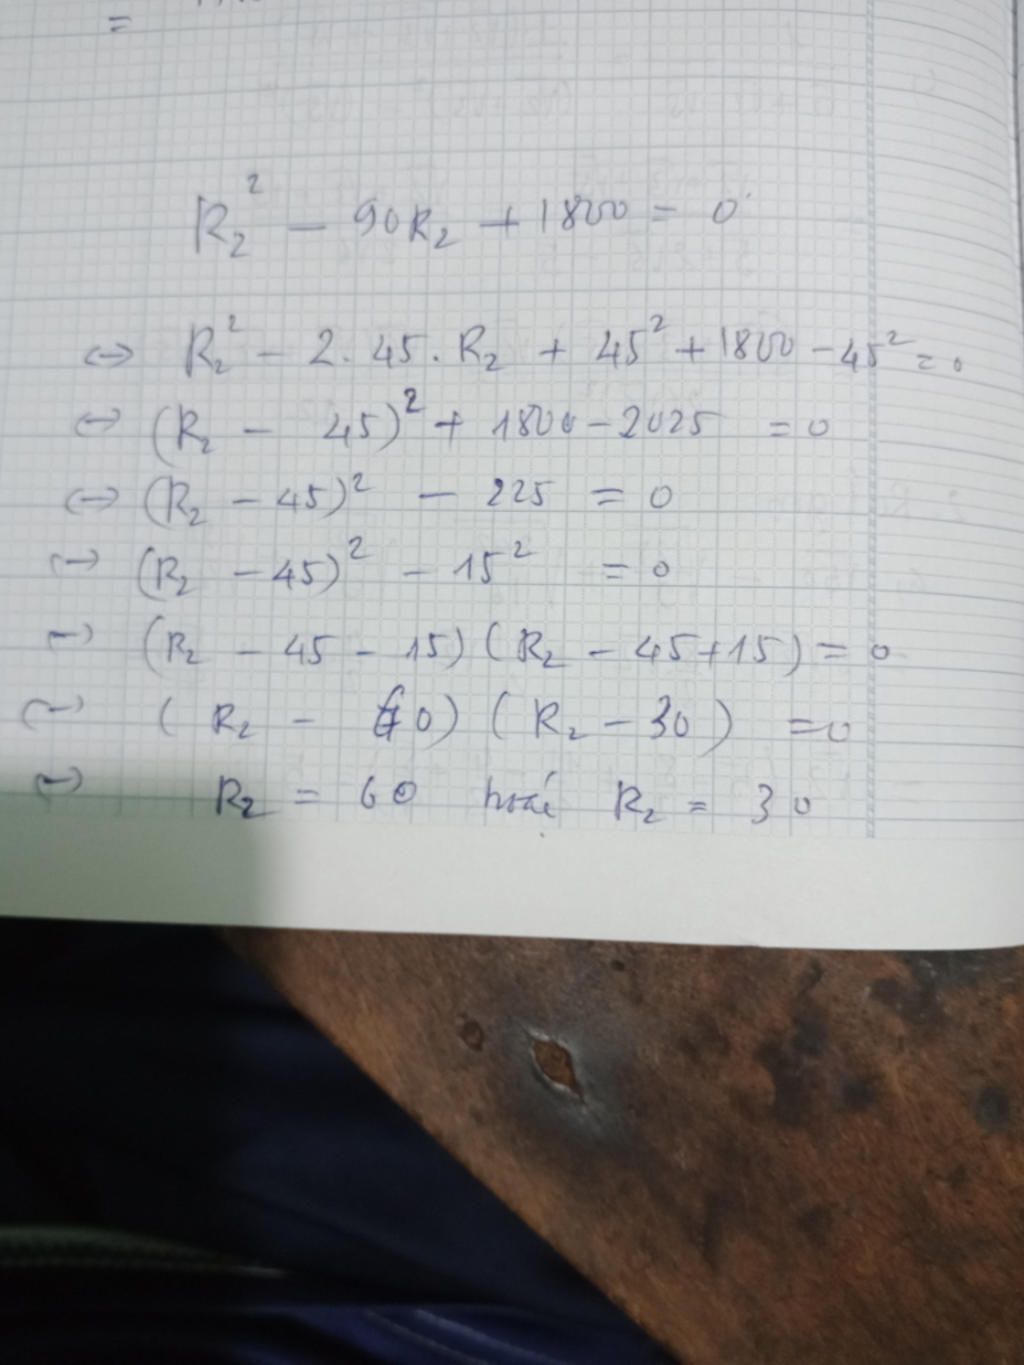 =
R₂² - 90R₂ + 1800 = 0
⇔ R₂² - 2. 45. R₂ + 45² + 1800 - 45² = 0
⇔ (R₂ - 45)² + 1800 - 2025 = 0
⇔ (R₂ - 45)² - 225 = 0
⇔ (R₂ - 45)² - 15² = 0
⇔ (R₂ - 45 - 15) (R₂ - 45 + 15) = 0
⇔ (R₂ - 60) (R₂ - 30) = 0
⇔ R₂ = 60 hoặc R₂ = 30